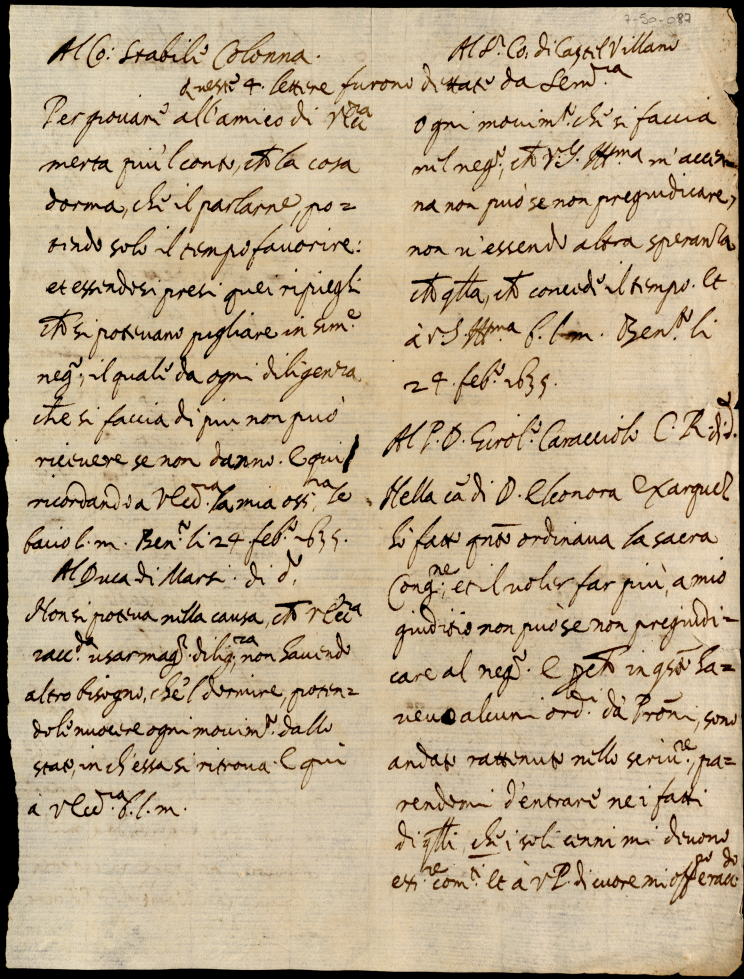 7-50-087
Al Co: Stabile Colonna.
Queste 4. lettere furono dittate da Sem.ria
Per giovare all'amico di V Ecc.za
merta più 'l conto, ch la cosa
dorma, che il parlarne, po=
tendo solo il tempo favorire:
et essendosi presi quei ripieghi
ch si potevano pigliare in sim.e
neg.o, il quale da ogni diligenza,
che si faccia di più non può
ricevere se non danno. E qui
ricordando a V Ecc.za la mia oss.za le
bacio l. m. Ben.to li 24 feb.o 1635.
Al Duca di Marsi. di d.o
Non si poteva nella causa, ch V Ecc.za
racc.da usar mag.r dilig.za non havendo
altro bisogno, che 'l dormire, poten=
dole nuocere ogni movim.to dallo
stato, in ch' essa si ritrova. E qui
à V Ecc.za b. l. m.
Al S.r Co. di Castel Villano
Ogni movim.to che si faccia
nel neg.o, ch V. S. Ill.ma m' accen=
na non può se non pregiudicare,
non v' essendo altra speranza
ch qlla, ch concede il tempo. Et
à V S. Ill.ma b. l. m. Ben.to li
24. feb.o 1635.
Al P. D. Girol.o Caracciolo C. R. di d.o
Nella cã di D. Eleonora Exarquel
hò fatto qnto ordinava la sacra
Cong.ne, et il voler far più, a mio
giuditio non può se non pregiudi=
care al neg.o. E pchè in qsto ha=
vevo alcuni ord.i da Proñi, sono
andato rattenuto nello scriv.re, pa=
rendomi d'entrare nei fatti
di qlli, che i soli cenni mi devono
ess.re com.ti Et à V P. di cuore mi offero e racc.do